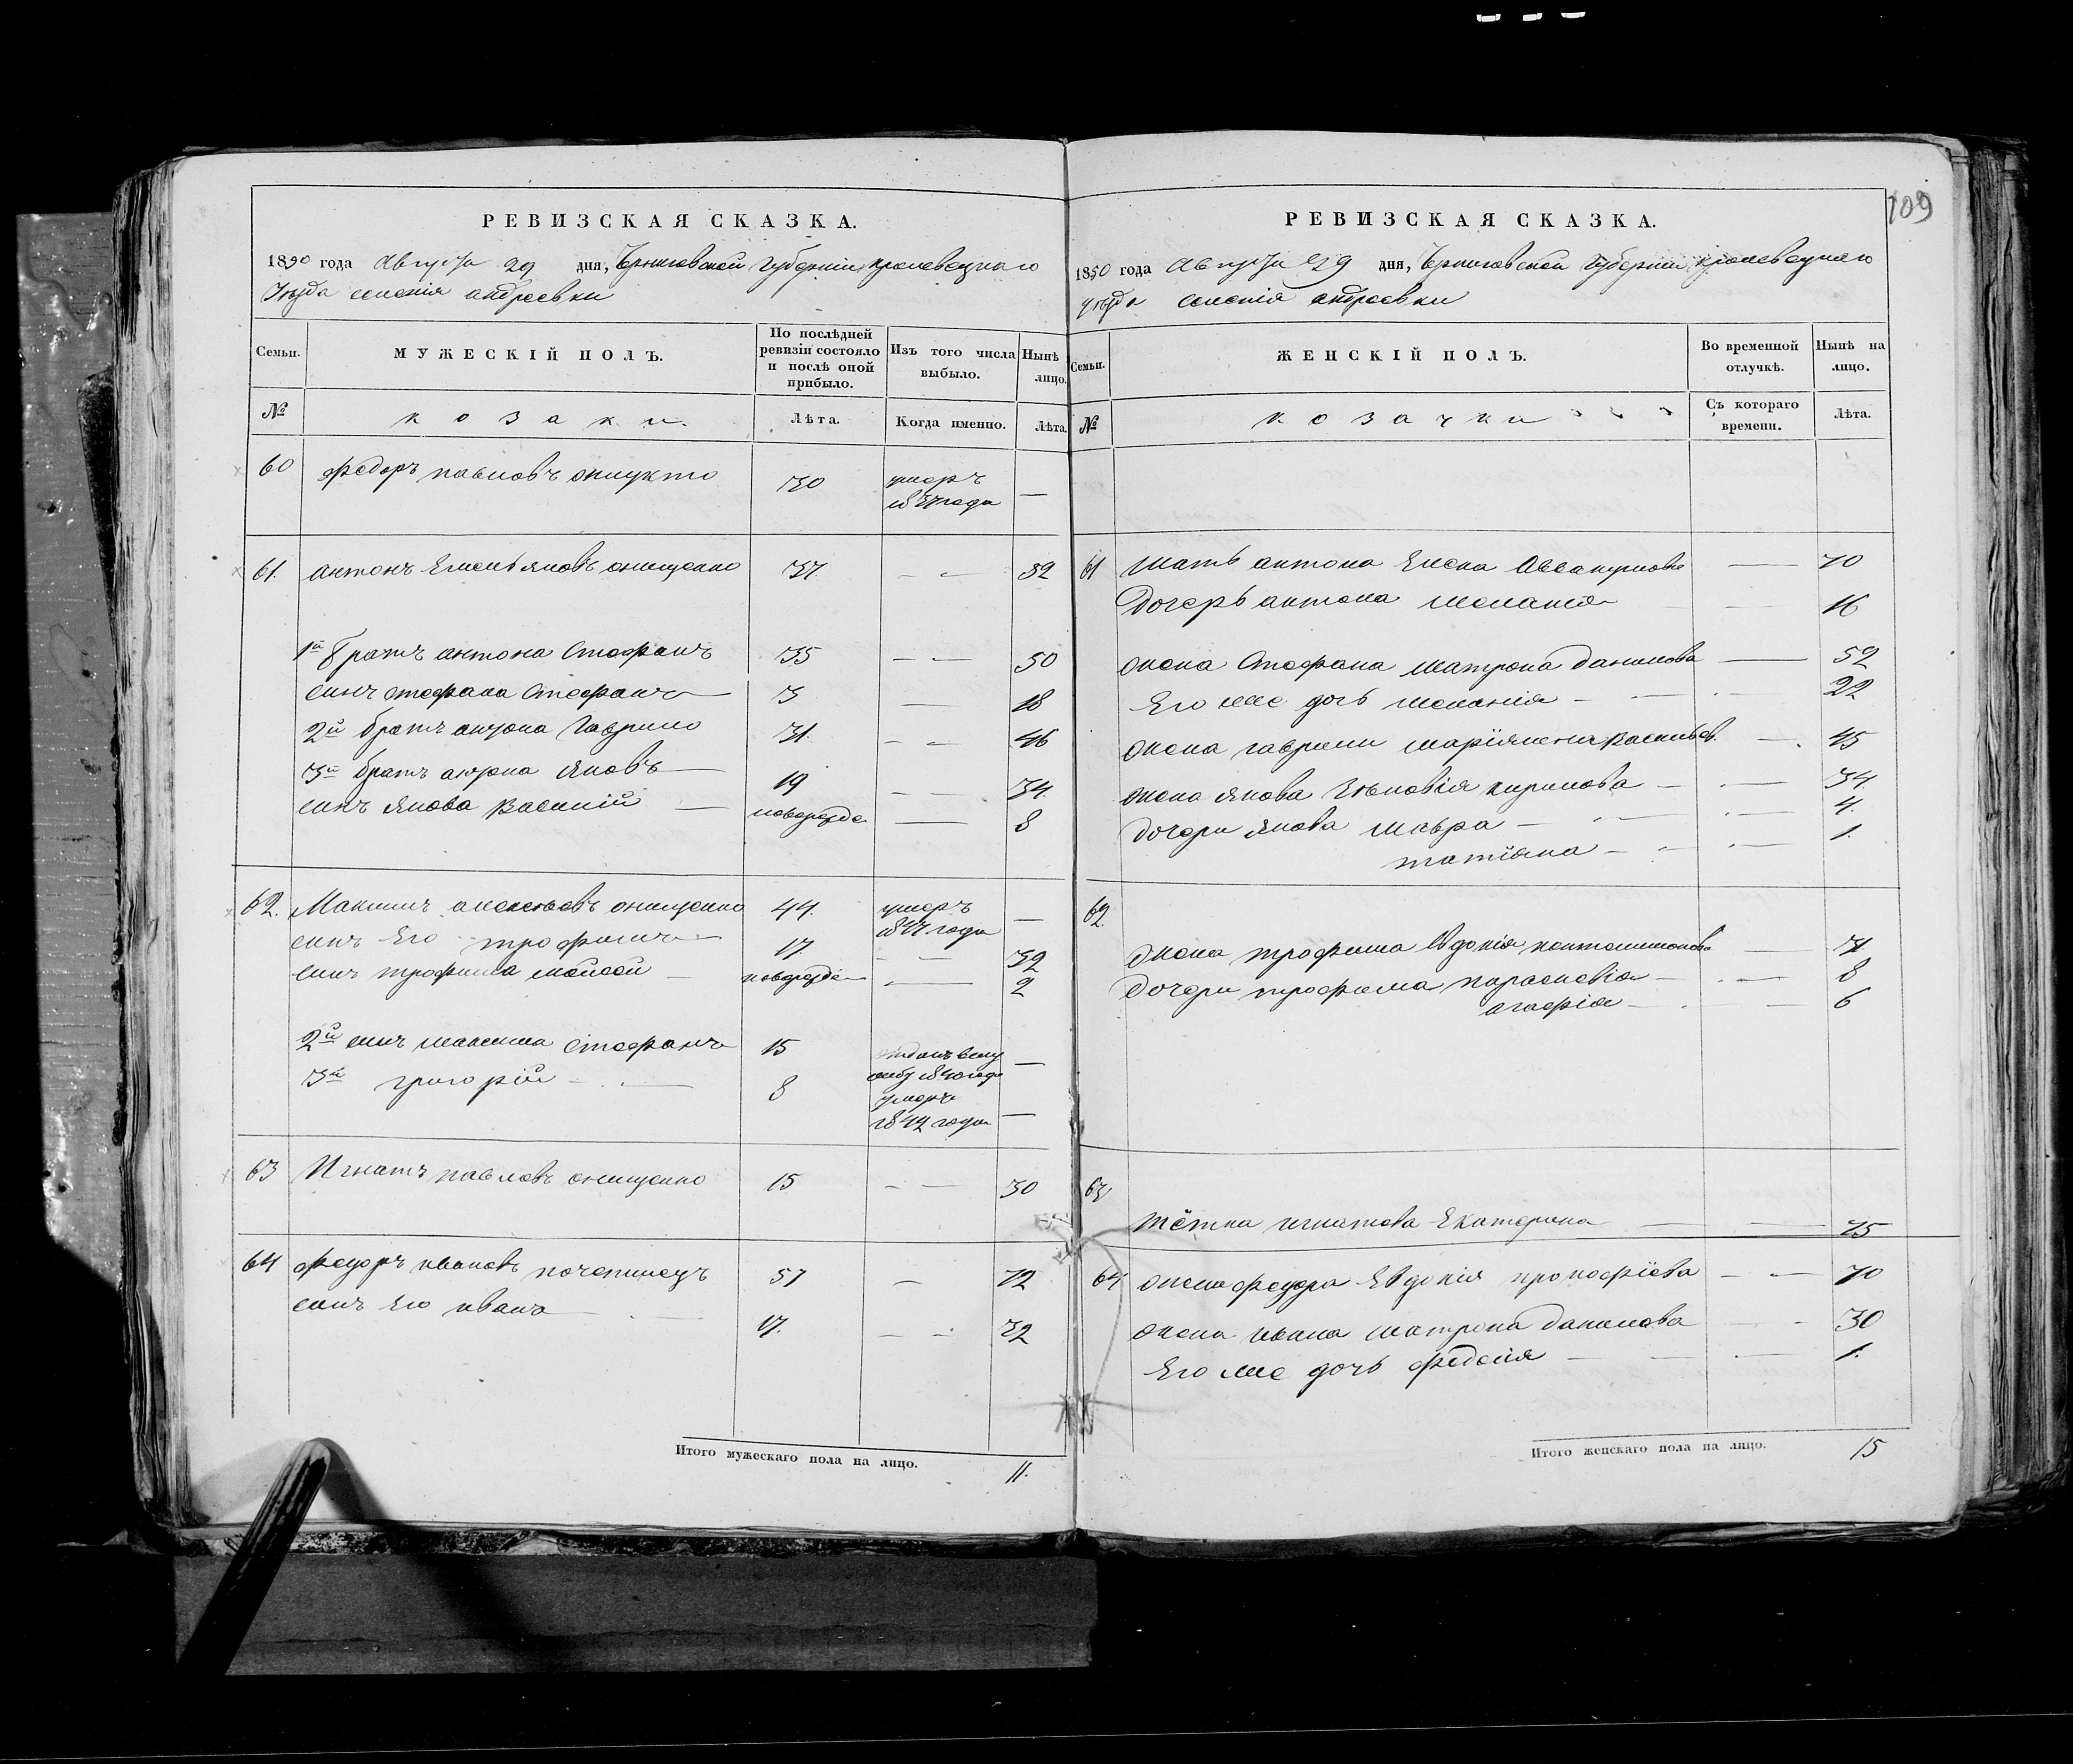 109
РЕВИЗСКАЯ СКАЗКА.
1850 года Августа 29 дня, Черниговской Губерніи, кролевецкаго
Уѣзда селенія андреевки
Семьи.
МУЖЕСКІЙ ПОЛЪ.
По послѣдней ревизіи состояло и послѣ оной прибыло.
Изъ того числа выбыло.
Нынѣ лицо.
№
козаки.
Лѣта.
Когда именно.
Лѣта.
60 федоръ павловъ 30 умеръ —
61. антонъ Емельяновъ онищенко 37 — — 52
1й братъ антона Стефанъ 35 — — 50
сынъ стефана Стефанъ — 3 — 18
2й братъ антона Гаврило 31. — — 46
3й братъ антона Яковъ — 19 — — 34
сынъ Якова Василій — новорожде — 8
62. Максимъ алексѣевъ онищенко 44 умеръ —
сынъ Его трофимъ — 17. — — 32
сынъ трофима мойсей — новорожде — 2
2й сынъ максима Стефанъ 15 —
3й григорій — — 8 умеръ 1842 года —
63 Игнатъ павловъ онищенко 15 — — 30
64 федоръ ивановъ почепинецъ 57 — 72
сынъ Его иванъ 17. — — 32
Итого мужескаго пола на лицо. 11.
РЕВИЗСКАЯ СКАЗКА.
1850 года Августа 29 дня, Черниговской Губерніи кролевецкаго
уѣзда селенія андреевки
Семьи.
ЖЕНСКІЙ ПОЛЪ.
Во временной отлучкѣ.
Нынѣ на лицо.
№
козачки
Съ котораго времени.
Лѣта.
61 мать антона Елена — 70
Дочерь антона меланія — 16
жена Стефана матрона данилова — 52
Его же дочь меланія — — 22
жена гаврила васильев. — 45
жена якова кирилова — — 34
дочери якова мавра — — 4.
татіяна — — 1.
62
жена трофима Евдокія — 31
дочери трофима парасковія — — 8
агафія — — 6
63
тётка игнатова Екатерина — — 75
64 жена федора Евдокія прокофіева — — 70
жена ивана матрона данилова — 30
Его же дочь федосія — — 1.
Итого женскаго пола на лицо. 15